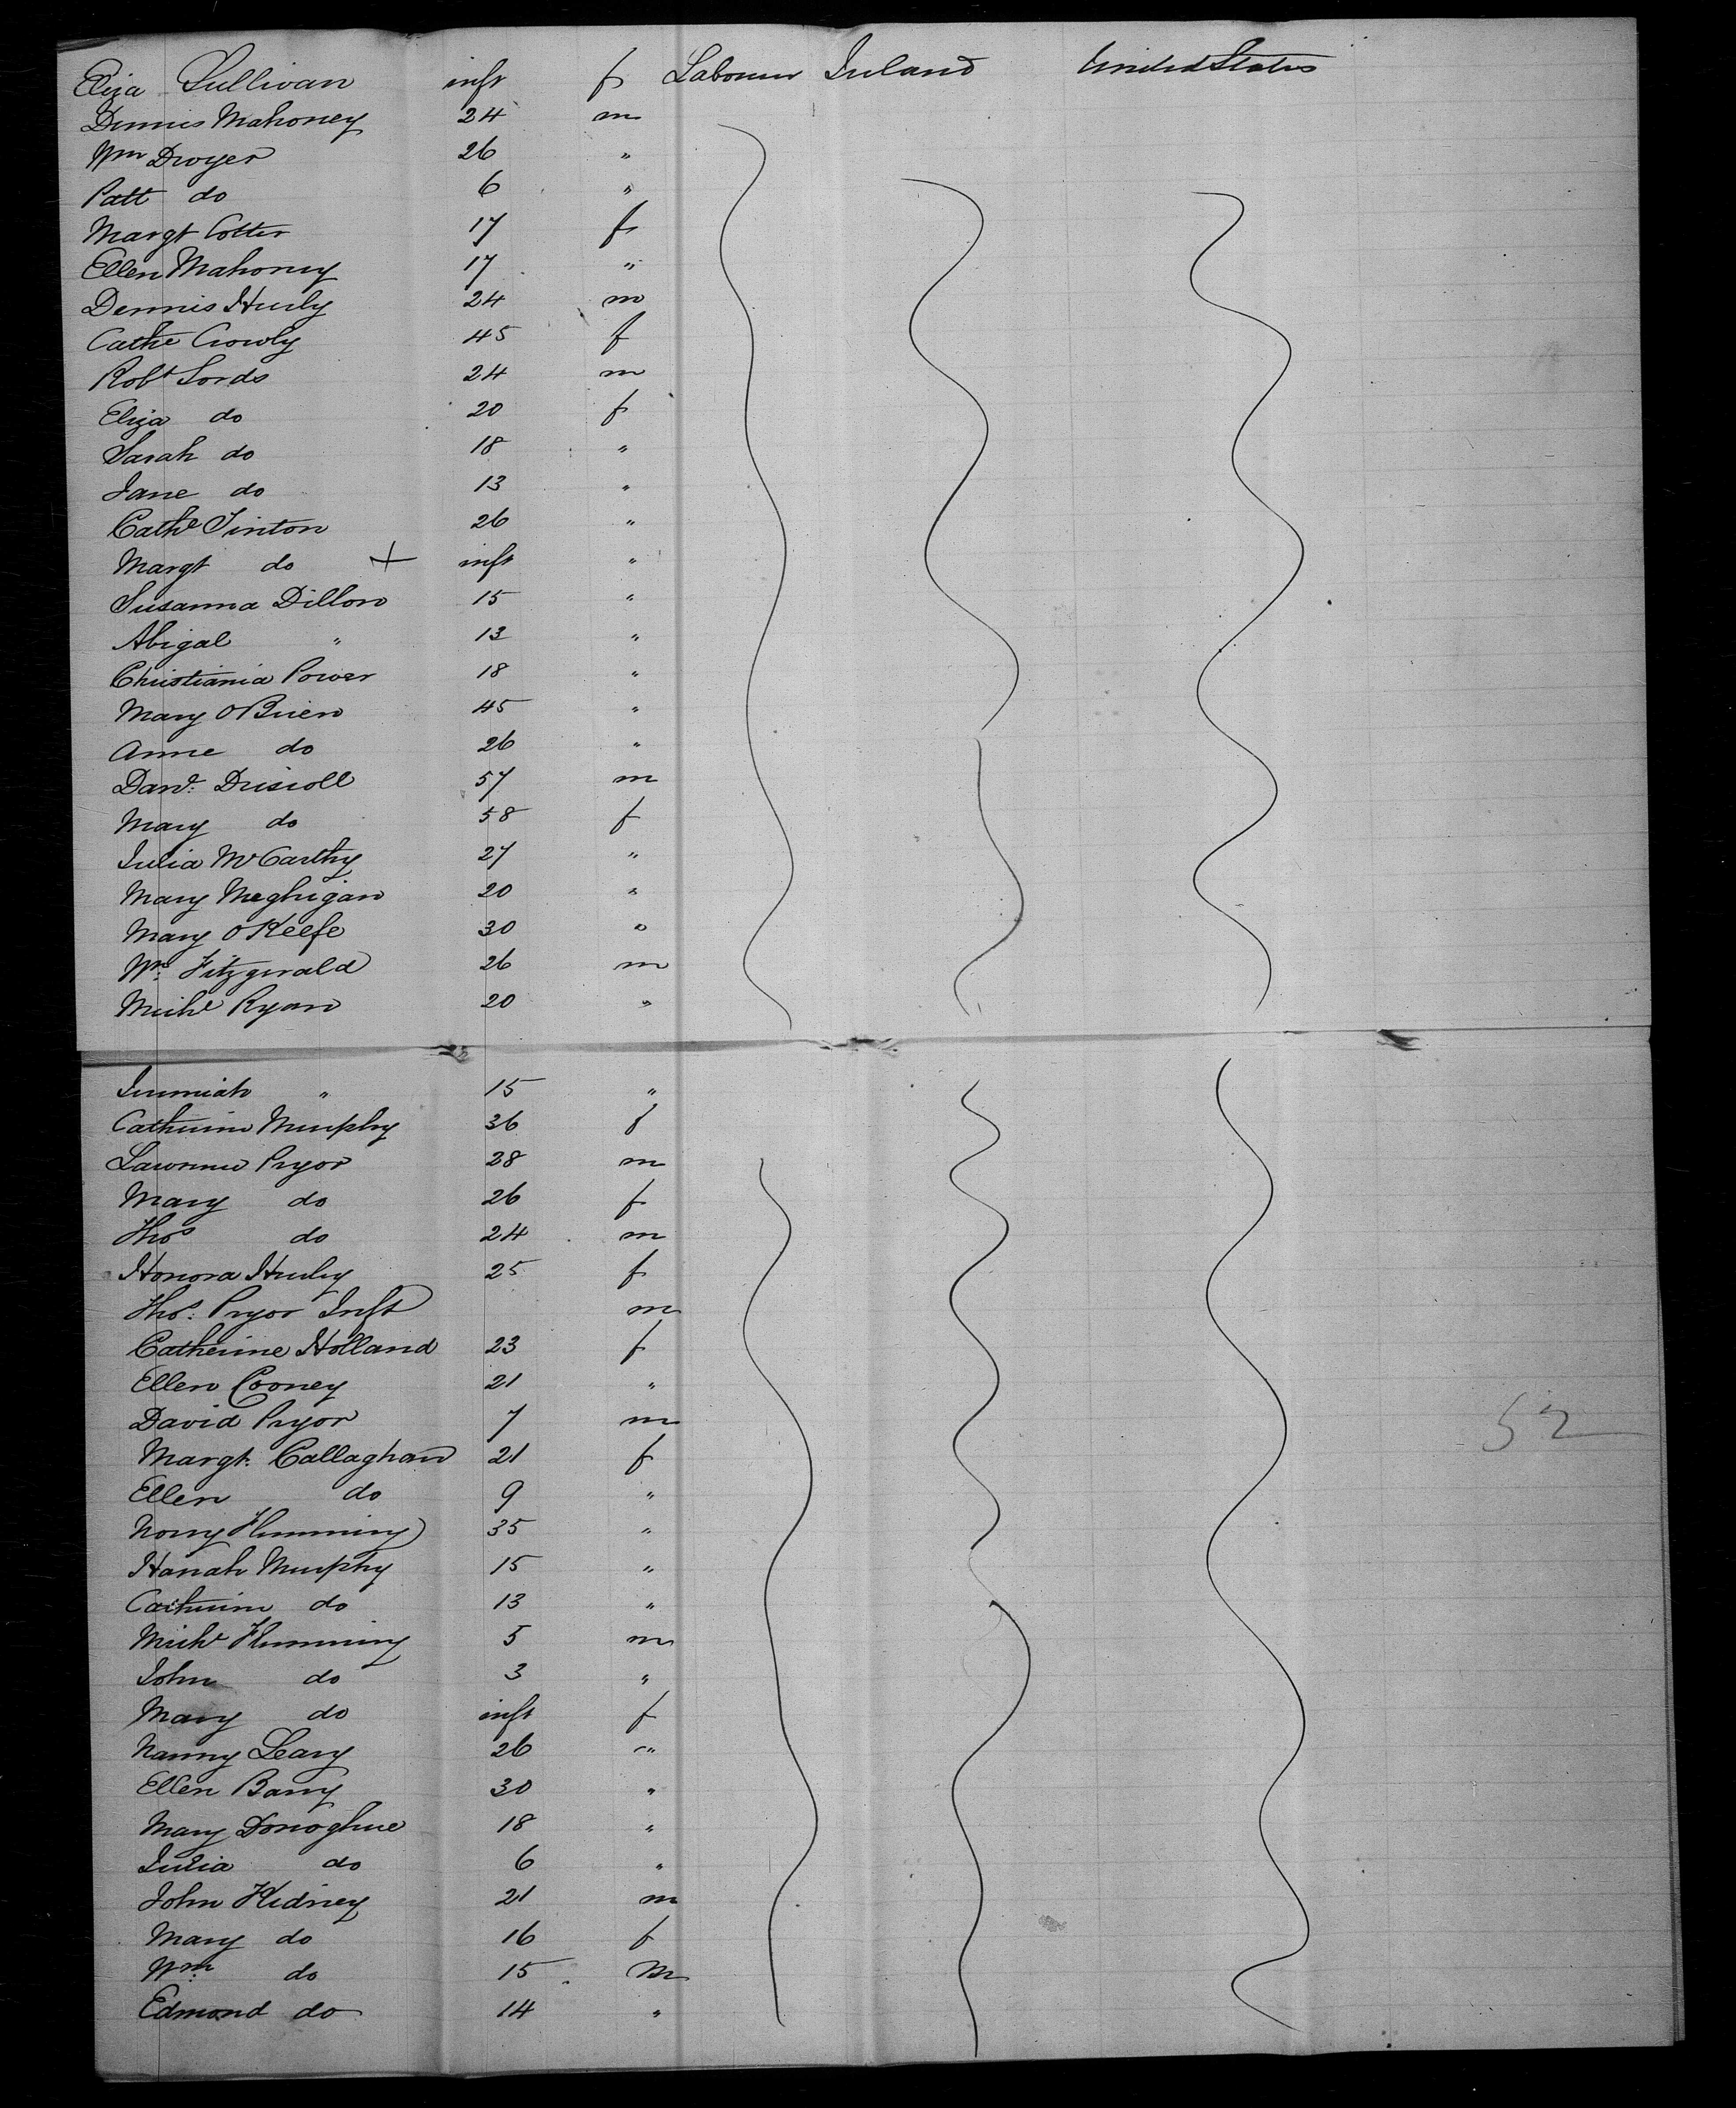 Eliza Sullivan inft f Labourer Ireland United States
Dennis Mahoney 24 m
Wm Dwyer 26 "
Patt do 6 "
Margt Cotter 17 f
Ellen Mahoney 17 "
Dennis Hurly 24 m
Cathe Crowly 45 f
Robt Lords 24 m
Eliza do 20 f
Sarah do 18 "
Jane do 13 "
Cathe Tinton 26 "
Margt do + inft "
Susanna Dillon 15 "
Abigal " 13 "
Christiania Power 18 "
Mary OBrien 45 "
Anne do 26 "
Danl. Driscoll 57 m
Mary do 58 f
Julia McCarthy 27 "
Mary Meghigan 20 "
Mary OKeefe 30 "
Wm. Fitzgerald 26 m
Michl Ryan 20 "
Jeremiah " 15 "
Catherine Murphy 36 f
Lawrence Pryor 28 m
Mary do 26 f
Thos do 24 m
Honora Hurley 25 f
Thos. Pryor Inft m
Catherine Holland 23 f
Ellen Cooney 21 "
David Pryor 7 m
Margt. Callaghan 21 f
Ellen do 9 "
Norry Flemming 35 "
Hanah Murphy 15 "
Catherine do 13 "
Michl Flemming 5 m
John do 3 "
Mary do inft f
Nanny Leary 26 "
Ellen Barry 30 "
Mary Donoghue 18 "
Julia do 6 "
John Kidney 21 m
Mary do 16 f
Wm. do 15 m
Edmond do 14 "
52